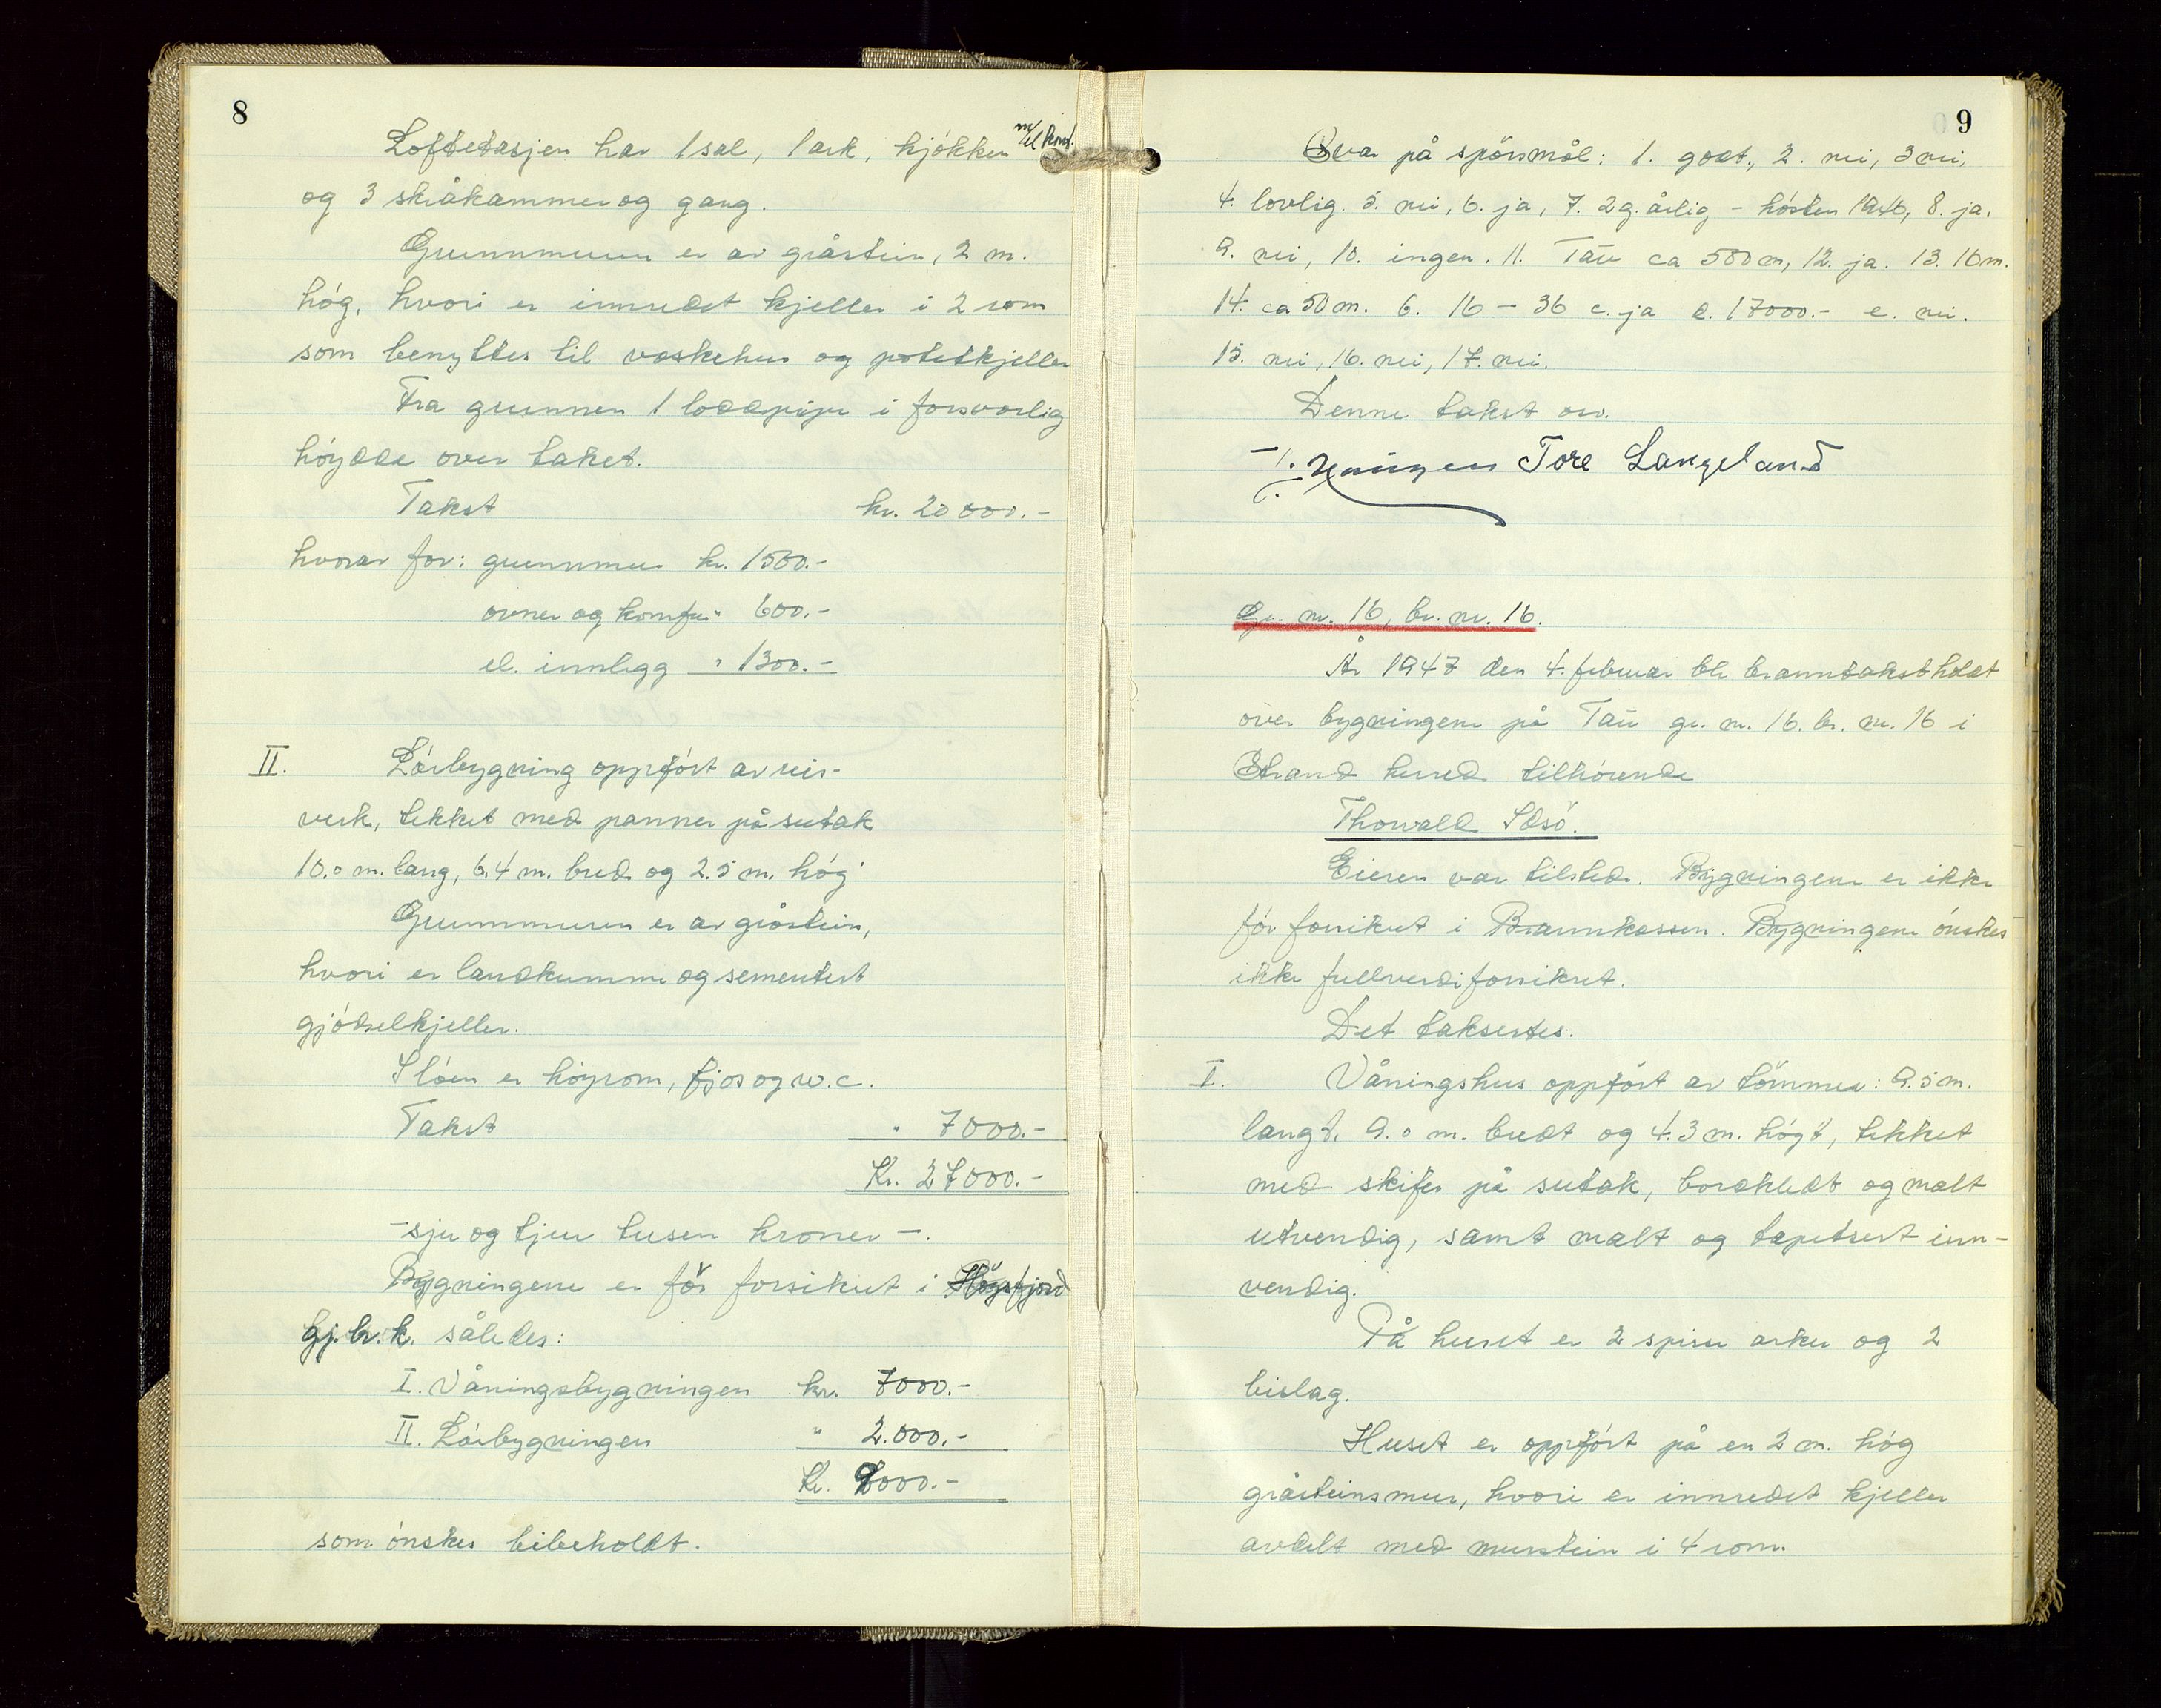 8
Loftetasjen har 1 sal, 1 ark, kjøkken m/el komf.
og 3 skråkammer og gang.
Grunnmuren er av gråstein, 2 m.
høg, hvori er innredet kjeller i 2 rom
som benyttes til vaskehus og potetkjeller
Fra grunnen 1 loddpipe i forsvarlig
høydde over taket.
Takst kr. 20000.-
hvorav for: grunnmur kr. 1500.-
ovner og komfur " 600.-
el. innlegg " 1300.-
II. Lørbygning oppført av reis-
verk, tekket med panner på sutak
10.0 m. lang, 6.4 m. bred og 2.5 m. høg
Grunnmuren er av gråstein,
hvori er landkumme og sementert
gjødselkjeller.
I løen er høyrom, fjos og w.c.
Takst " 7000.-
Kr. 27000.-
- sju og tjue tusen kroner -.
Bygningene er før forsikret i Høgsfjord
gj. br. k. således:
I. Våningsbygningen kr. 7000.-
II. Lørbygningen " 2.000.-
Kr. 9000.-
som ønskes bibeholdt.
9
Svar på spørsmål: 1. godt., 2. nei, 3 nei,
4. lovlig. 5. nei, 6. ja, 7. 2 g. årlig - høsten 1946, 8. ja.
9. nei, 10. ingen. 11. Tau ca 500 m, 12. ja. 13. 16 m.
14. ca 50 m. b. 16 - 36 c. ja d. 17000.- e. nei.
15. nei, 16. nei, 17. nei.
Denne takst osv.
Tore Langeland
Gr. nr. 16, br. nr. 16.
År 1947 den 4. februar ble branntakst holdt
over bygningene på Tau gr. nr. 16. br. nr. 16 i
Strand herred tilhørende
Thorvald Idsö.
Eieren var tilstede. Bygningene er ikke
før forsikret i Brannkassen. Bygningene ønskes
ikke fullverdiforsikret.
Det taksertes.
I. Våningshus oppført av tømmer: 9.5 m.
langt. 9.0 m. bredt og 4.3 m. høgt, tekket
med skifer på sutak, bordkledt og malt
utvendig, samt malt og tapetsert inn-
vendig.
På huset er 2 spisse arker og 2
bislag.
Huset er oppført på en 2 m. høg
gråsteinsmur, hvori er innredet kjeller
avdelt med murstein i 4 rom.